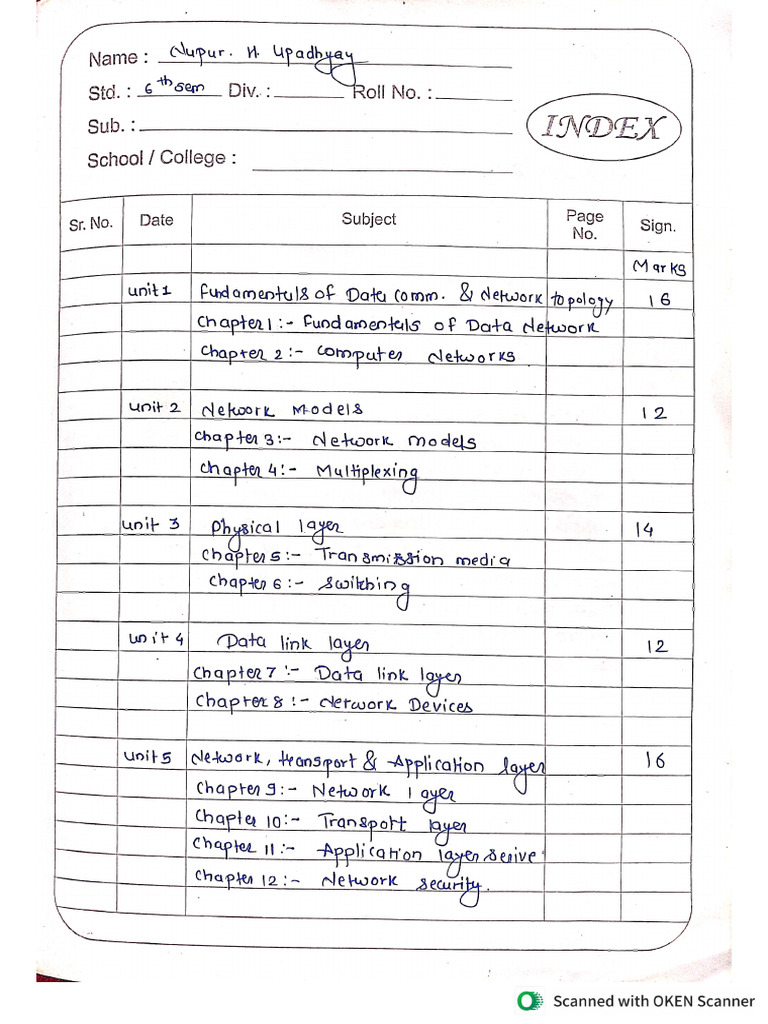 Name : Nupur. H. Upadhyay
Std. : 6th sem Div. : Roll No. :
Sub. :
INDEX
School / College :
Sr. No. Date Subject Page No. Sign.
Marks
unit 1 Fundamentals of Data Comm. & Network topology 16
Chapter 1 :- Fundamentals of Data Network
Chapter 2 :- Computer Networks
unit 2 Network Models 12
Chapter 3:- Network models
Chapter 4:- Multiplexing
unit 3 Physical layer 14
Chapter 5:- Transmission media
Chapter 6:- Switching
unit 4 Data link layer 12
Chapter 7 :- Data link layer
Chapter 8 :- Network Devices
unit 5 Network, transport & Application layer 16
Chapter 9:- Network layer
Chapter 10:- Transport layer
Chapter 11 :- Application layer serive
Chapter 12:- Network security.
Scanned with OKEN Scanner